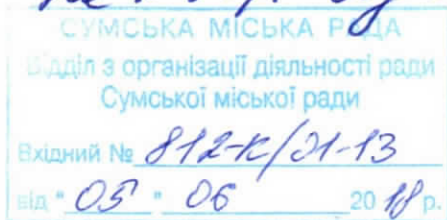 СУМСЬКА МІСЬКА РАДА
Відділ з організації діяльності ради
Сумської міської ради
Вхідний № 812-К/01-13
від "05" 06 2018 р.